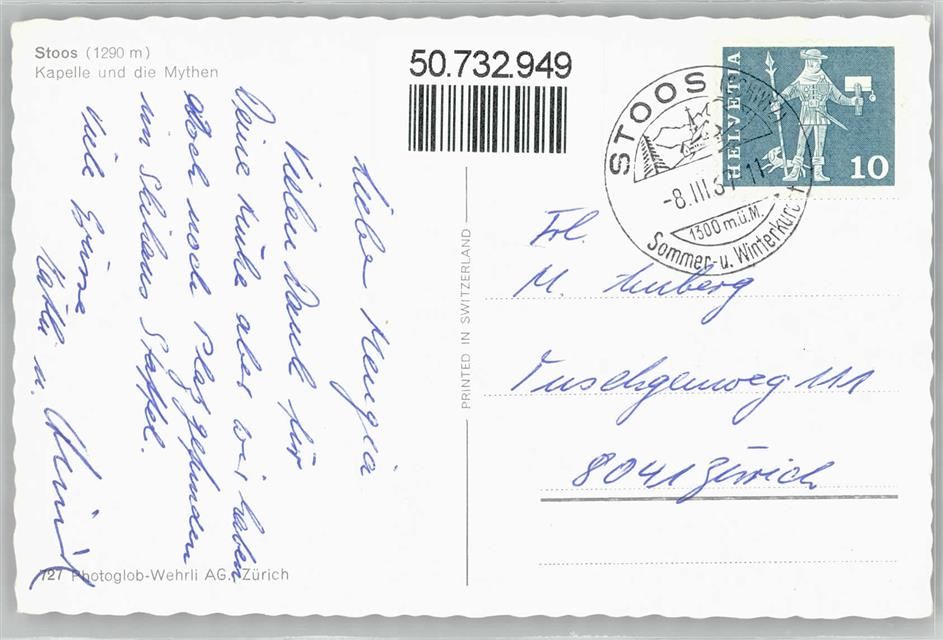 Stoos (1290 m)
Kapelle und die Mythen
50.732.949
HELVETIA
10
STOOS (SCHWYZ)
-8.III.67-11
1300 m.ü.M.
Sommer- u. Winterkurort
PRINTED IN SWITZERLAND
Liebe Mengia
Vielen Dank für
Deine Mühe aber wir haben
doch noch Platz gefunden
im Skihaus Stoffel.
Viele Grüsse
u.
Frl.
M.
111
8041 Zürich
727 Photoglob-Wehrli AG., Zürich